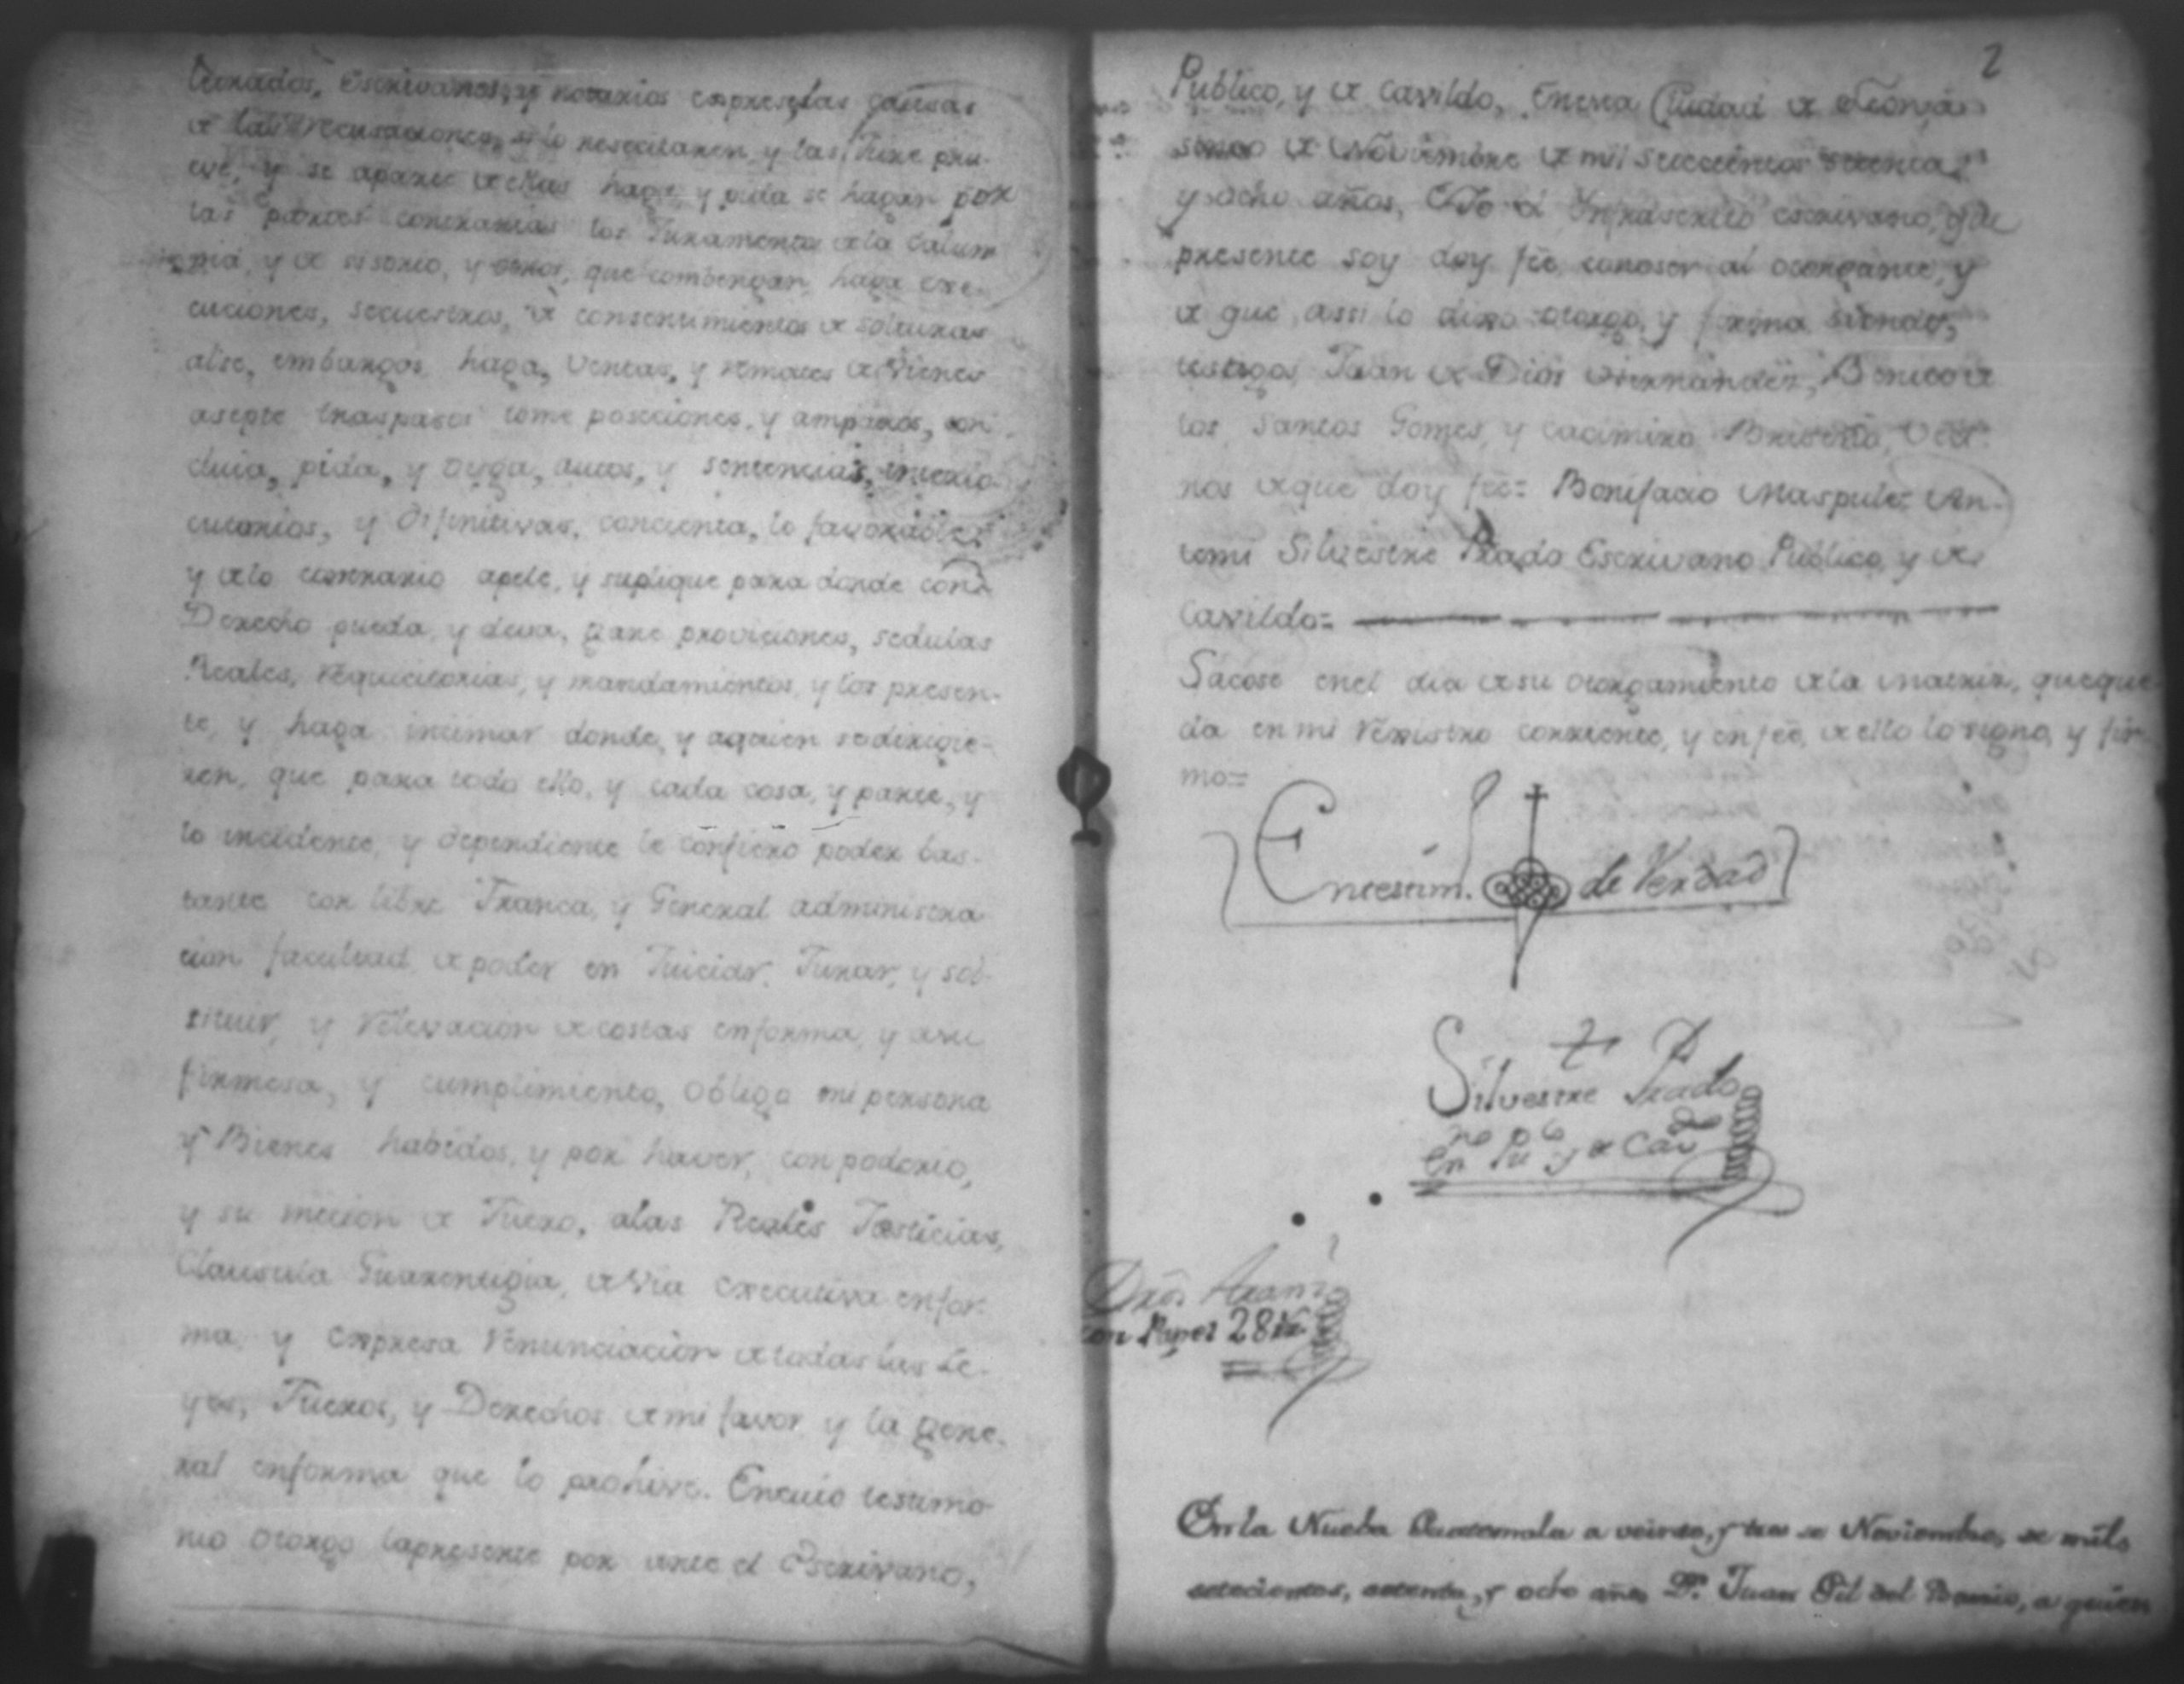 letrados, Escrivanos, y notarios exprese las causas
de las recusaciones, si lo nesecitaren y las Jure prue-
eve, y se aparte de ellas haga, y pida se hagan por
las partes contrarias los Juramentos de la Calum
nia, y de sisorio, y otros, que combengan, haga exe-
cuciones, secuestros, de consentimientos de solturas
alse, embargos haga, ventas, y remates de Vienes
asepte traspasos tome poseciones, y amparos, con
cluia, pida, y oyga, autos, y sentencias, interlo
cutorios, y difinitivas, concienta, lo favorable
y de lo contrario apele, y suplique para donde con
Derecho pueda, y deva, gane proviciones, sedulas
Reales, requicitorias, y mandamientos, y los presen-
te, y haga intimar donde, y aquien se dirigie-
ren, que para todo ello, y cada cosa, y parte, y
lo incidente, y dependiente le confiero poder bas-
tante con libre Franca, y General administra
cion facultad de poder en Juiciar, Jurar, y sob-
stituir, y relevacion de costas en forma, y a su
firmesa, y cumplimiento, obligo mi persona
y Bienes habidos, y por haver, con poderio,
y su micion de Fuero, a las Reales Justicias,
Clausula Guarentigia, de via executiva en for-
ma, y expresa renunciacion de todas las Le-
yes, Fueros, y Derechos de mi favor y la gene-
ral en forma que lo prohive. En cuio testimo
nio otorgo la presente por ante el Escrivano,
2
Publico, y de Cavildo, En esta Ciudad de Leon, a
sinco de Noviembre de mil setecientos setenta
y ocho años, E Yo el Ynfrascrito escrivano, que
presente soy doy feé conoser al otorgante, y
de que assi lo dixo otorgo, y firma siendo
testigos Juan de Dios Hernandez, Benito de
los Santos Gomes, y Cacimiro Briseño, Veci-
nos de que doy feé= Bonifacio Maspule= An-
temi Silvestre Prado Escrivano Publico, y de
Cavildo=
Sacose en el dia de su otorgamiento de la matriz, que que
da en mi rexistro corriente, y en feé, de ello lo signo, y fir
mo=
En testim. de Verdad
Silvestre Prado
no pco
En Pu y de Cavdo
Dros
con Papel 28 rs
En la Nueba Guatemala a veinte, y tres de Noviembre, de mil
setecientos, setenta, y ocho años Dn. Juan Gil del Barrio, a quien